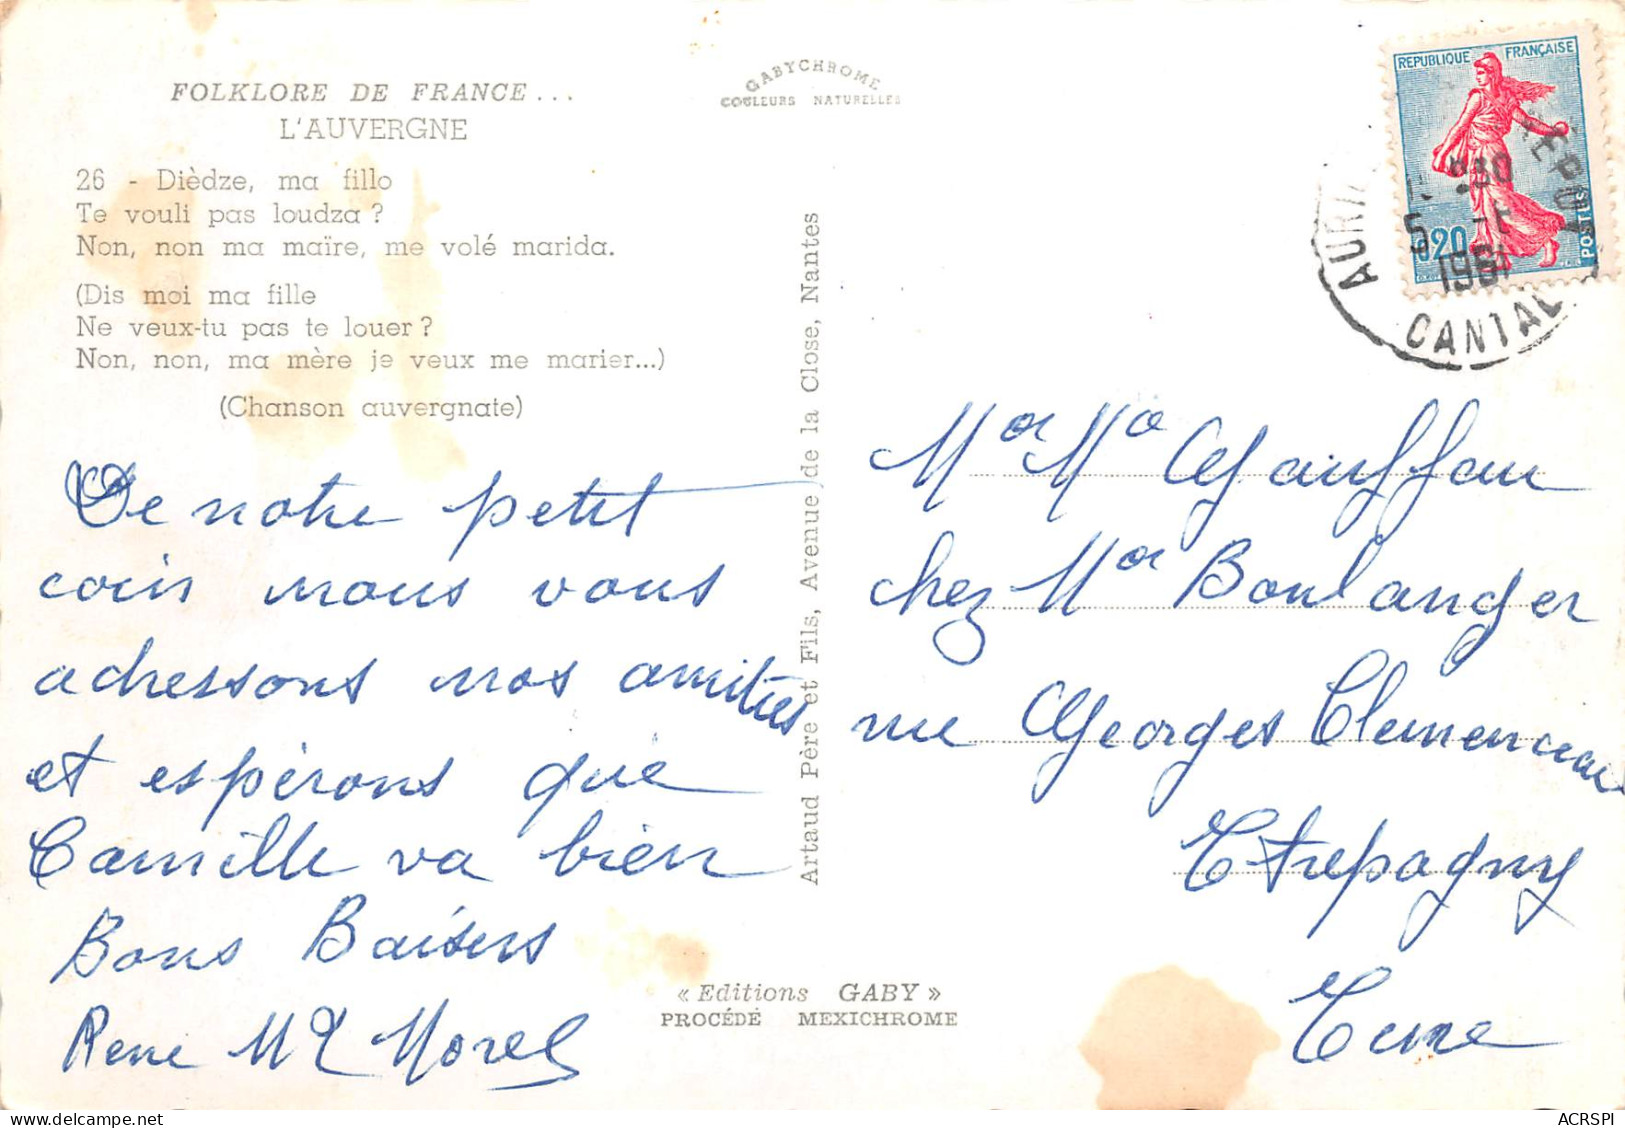 FOLKLORE DE FRANCE...
L'AUVERGNE
26 - Dièdze, ma fillo
Te vouli pas loudza ?
Non, non ma maïre, me volé marida.
(Dis moi ma fille
Ne veux-tu pas te louer ?
Non, non, ma mère je veux me marier...)
(Chanson auvergnate)
De notre petit
coin nous vous
adressons nos amitiés
et espérons que
Camille va bien
Bons Baisers
Rene Morel
GABYCHROME
COULEURS NATURELLES
Artaud Père et Fils, Avenue de la Close, Nantes
« Editions GABY »
PROCÉDÉ MEXICHROME
REPUBLIQUE FRANÇAISE
POSTES
0,20
1961
CANTAL
Mr Me Gauffau
chez Mr Boulanger
rue Georges Clemenceau
Etrepagny
Eure
ACRSPI